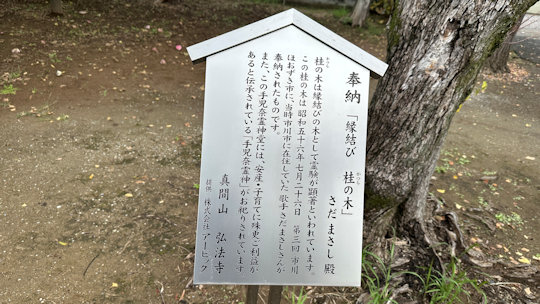 奉納 「縁結び 桂の木」
かつら
さだまさし 殿
かつら
桂の木は縁結びの木として霊験が顕著といわれています。
この桂の木は 昭和五十六年七月二十六日 第三回 市川
ほおずき市に、当時市川市に在住していた 歌手さだまさしさんが
奉納されたものです。
また、この手児奈霊神堂には、安産・子育てに殊更ご利益が
あると伝承されている「手児奈霊神」がお祀りされています
真間山 弘法寺
提供 株式会社 アービック